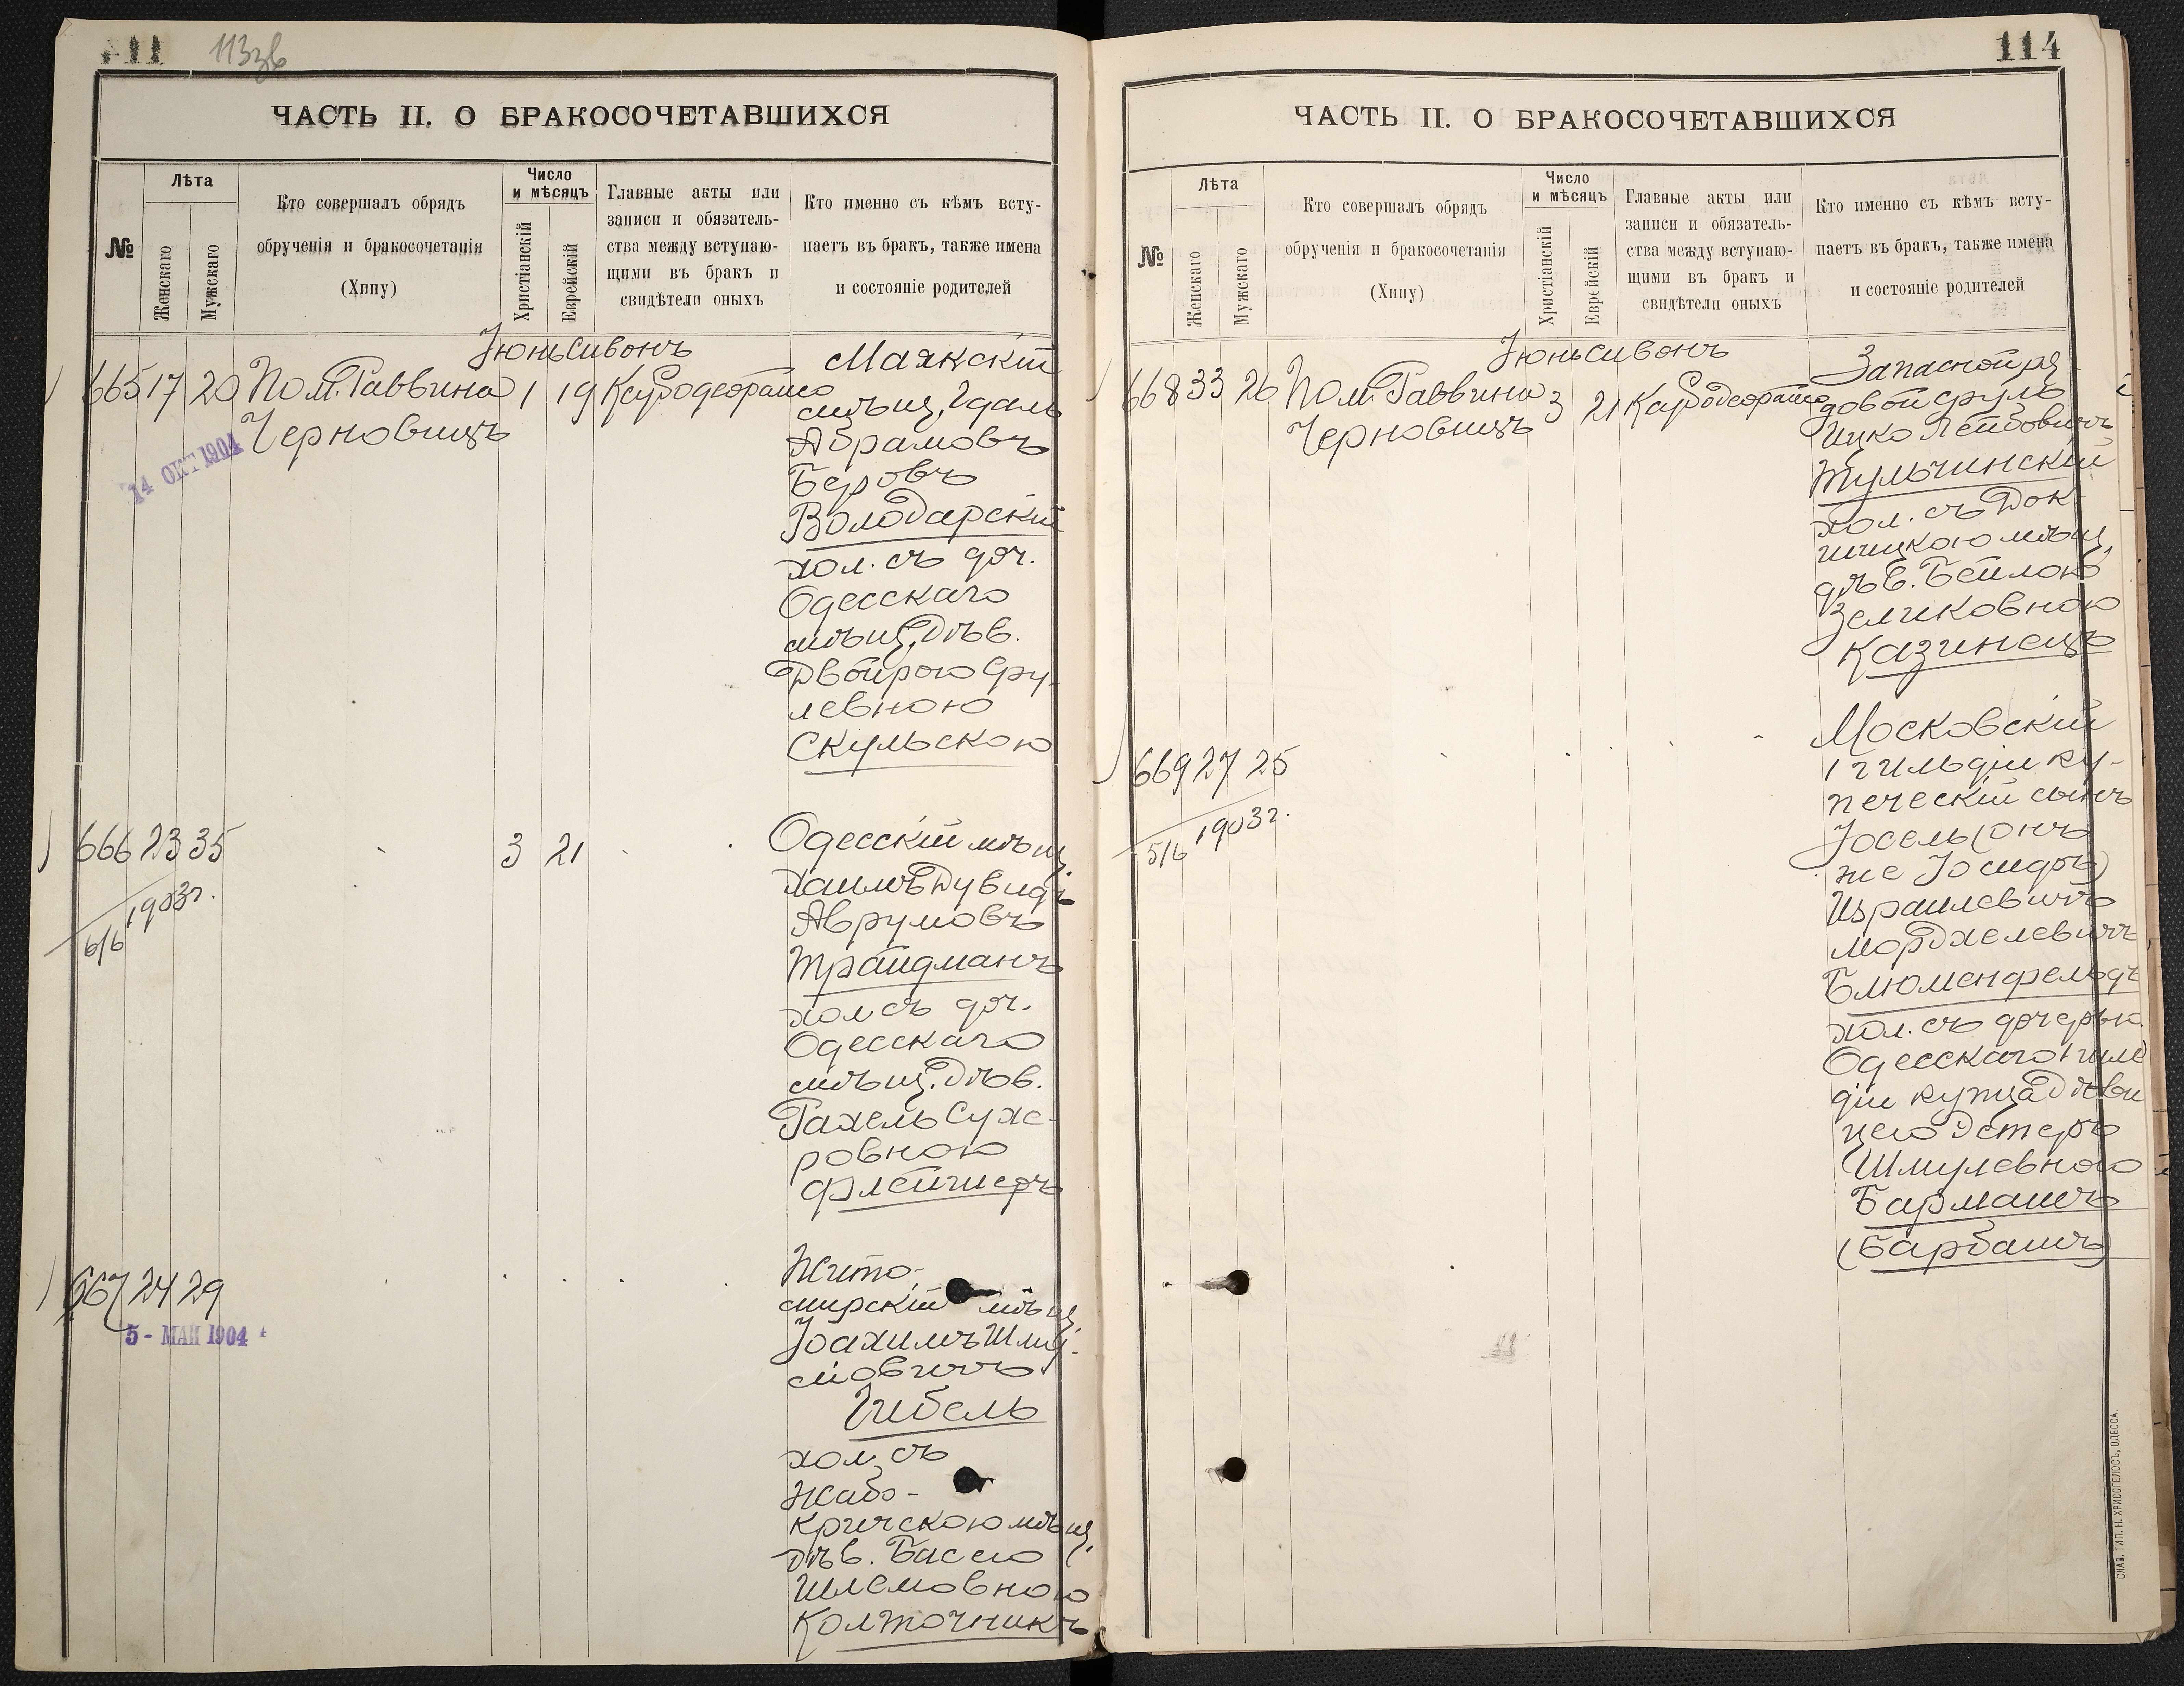 11 113зв
ЧАСТЬ II. О БРАКОСОЧЕТАВШИХСЯ
№
Лѣта
Женскаго
Мужскаго
Кто совершалъ обрядъ
обрученія и бракосочетанія
(Хипу)
Число
и мѣсяцъ
Христіанскій
Еврейскій
Главные акты или
записи и обязатель-
ства между вступаю-
щими въ бракъ и
свидѣтели оныхъ
Кто именно съ кѣмъ всту-
паетъ въ бракъ, также имена
и состояніе родителей
Іюнь Сивонъ
665 17 20 Пом. Раввина 1 19
Черновицъ
14 ОКТ 1904
Маякскій
мѣщ. Гдаль
Абрамовъ
Беровъ
Володарскій
хол. съ доч.
Одесскаго
мѣщ. Дѣв.
Двойрою Сру-
левною
Скульскою
666 23 35 3 21
6/6 1903г.
Одесскій мѣщ.
Хаимъ Дувидъ
Аврумовъ
Трайдманъ
хол съ доч.
Одесскаго
мѣщ. Дѣв.
Рахель Сухе-
ровною
Флейшеръ
667 24 29
5 - МАЯ 1904
Жито-
мирскій мѣщ.
Іоахимъ Шму-
Гибель
хол. съ
Жабо-
кричскою мѣщ.
Дѣв. Басею
Шлемовною
Колточникъ
114
ЧАСТЬ II. О БРАКОСОЧЕТАВШИХСЯ
№
Лѣта
Женскаго
Мужскаго
Кто совершалъ обрядъ
обрученія и бракосочетанія
(Хипу)
Число
и мѣсяцъ
Христіанскій
Еврейскій
Главные акты или
записи и обязатель-
ства между вступаю-
щими въ бракъ и
свидѣтели оныхъ
Кто именно съ кѣмъ всту-
паетъ въ бракъ, также имена
и состояніе родителей
Іюнь Сивонъ
668 33 26 Пом. Раввина 3 21
Черновицъ
Запасной ря-
довой Сруль
Ицко Лейбовичъ
Тульчинскій
хол. съ Док-
шицкою мѣщ.
дѣв. Бейлою
Зеликовною
Казинецъ
669 27 25
5/6 1903г.
Московскій
1 гильдіи ку-
печескій сынъ
Іосель (онъ
же Іосифъ)
Израилевичъ
Мордхелевичъ
Блюменфельдъ
хол. съ дочерью
Одесскаго 1 гиль
діи купца Дѣви
цею Эстеръ
Шмулевною
Бармашъ
(Барбашъ)
СЛАВ. ТИП. Н. ХРИСОГЕЛОСЪ, ОДЕССА.